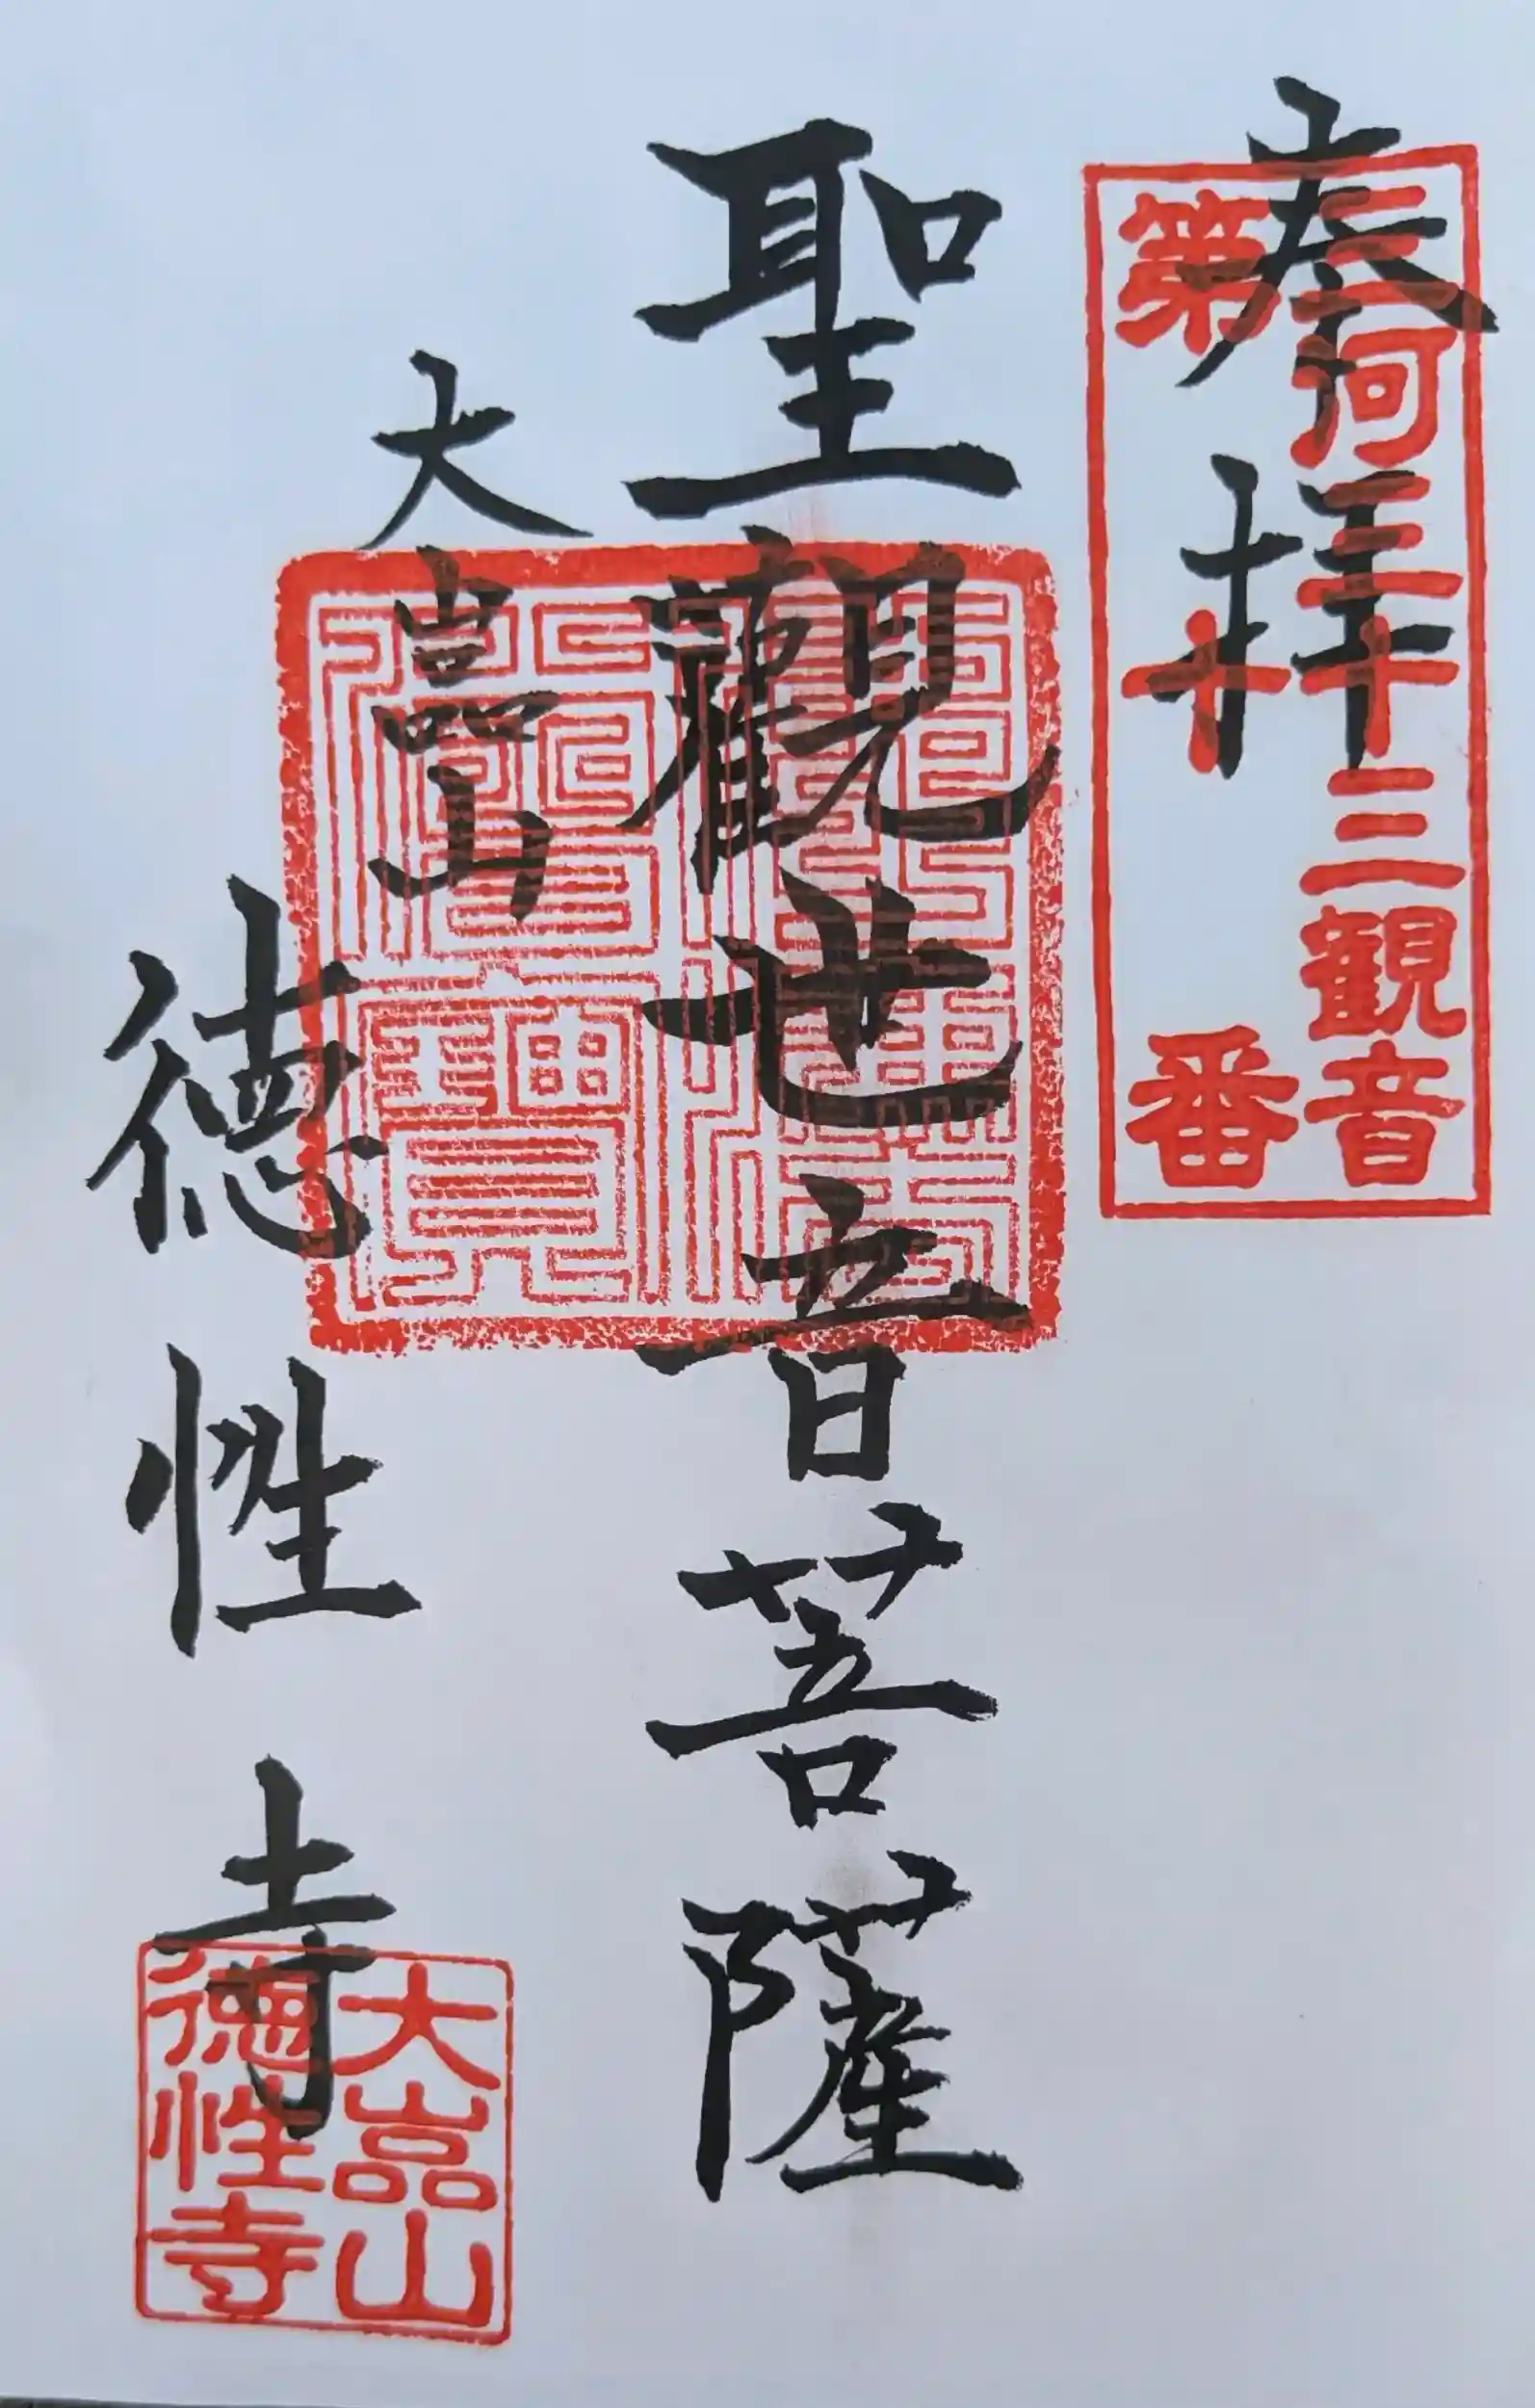 奉拝
三河三十三観音
第十番
聖觀世音菩薩
大嵓山
徳性寺
大嵓山
徳性寺